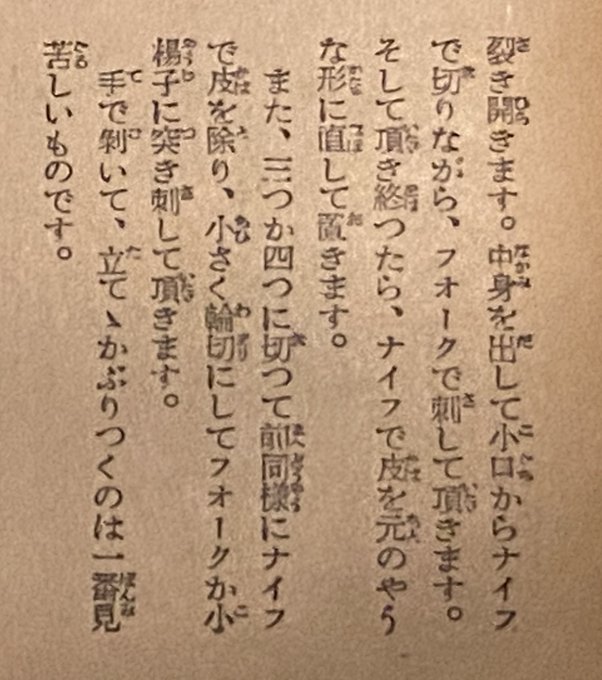 裂き開きます。中身を出して小口からナイフ
で切りながら、フオークで刺して頂きます。
そして頂き終つたら、ナイフで皮を元のやう
な形に直して置きます。
また、三つか四つに切つて前同様にナイフ
で皮を除り、小さく輪切にしてフオークか小
楊子に突き刺して頂きます。
手で剝いて、立てゝかぶりつくのは一番見
苦しいものです。